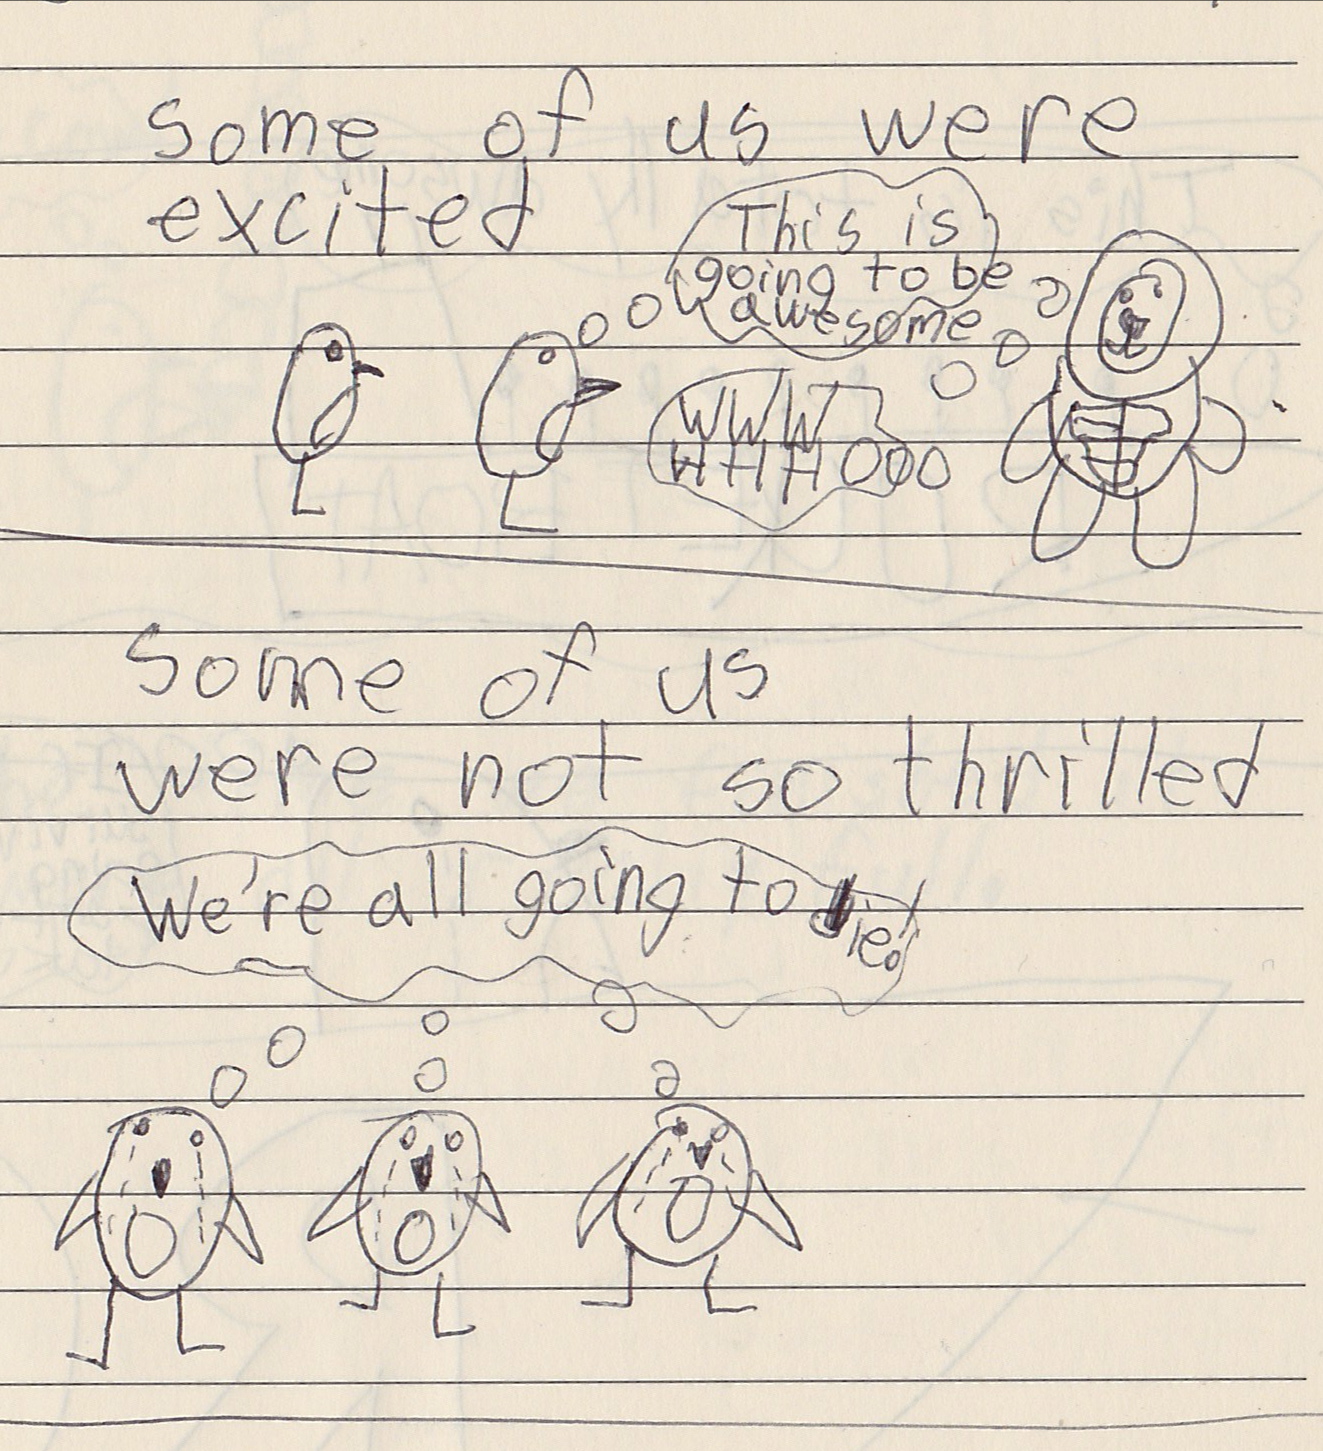 Some of us were
excited
This is
going to be
awesome
WWW
HHHOOO
Some of us
were not so thrilled
We're all going to die!